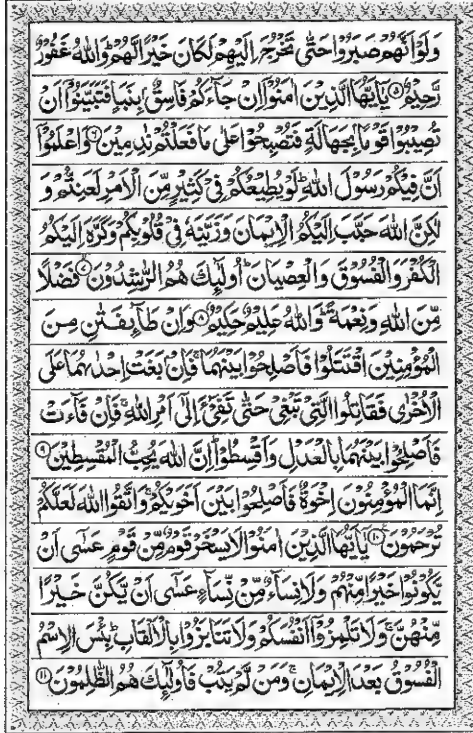 وَلَوْ اَنَّهُمْ صَبَرُوْا حَتّٰى تَخْرُجَ اِلَيْهِمْ لَكَانَ خَيْرًا لَّهُمْ ؕ وَاللّٰهُ غَفُوْرٌ
رَّحِيْمٌ ۵ يٰۤاَيُّهَا الَّذِيْنَ اٰمَنُوْۤا اِنْ جَآءَكُمْ فَاسِقٌۢ بِنَبَاٍ فَتَبَيَّنُوْۤا اَنْ
تُصِيْبُوْا قَوْمًاۢ بِجَهَالَةٍ فَتُصْبِحُوْا عَلٰى مَا فَعَلْتُمْ نٰدِمِيْنَ ۶ وَاعْلَمُوْۤا
اَنَّ فِيْكُمْ رَسُوْلَ اللّٰهِ ؕ لَوْ يُطِيْعُكُمْ فِيْ كَثِيْرٍ مِّنَ الْاَمْرِ لَعَنِتُّمْ وَ
لٰكِنَّ اللّٰهَ حَبَّبَ اِلَيْكُمُ الْاِيْمَانَ وَزَيَّنَهٗ فِيْ قُلُوْبِكُمْ وَكَرَّهَ اِلَيْكُمُ
الْكُفْرَ وَالْفُسُوْقَ وَالْعِصْيَانَ ؕ اُولٰٓئِكَ هُمُ الرّٰشِدُوْنَ ۷ فَضْلًا
مِّنَ اللّٰهِ وَنِعْمَةً ؕ وَاللّٰهُ عَلِيْمٌ حَكِيْمٌ ۸ وَاِنْ طَآئِفَتٰنِ مِنَ
الْمُؤْمِنِيْنَ اقْتَتَلُوْا فَاَصْلِحُوْا بَيْنَهُمَا ۚ فَاِنْۢ بَغَتْ اِحْدٰىهُمَا عَلَى
الْاُخْرٰى فَقَاتِلُوا الَّتِيْ تَبْغِيْ حَتّٰى تَفِيْٓءَ اِلٰٓى اَمْرِ اللّٰهِ ۚ فَاِنْ فَآءَتْ
فَاَصْلِحُوْا بَيْنَهُمَا بِالْعَدْلِ وَاَقْسِطُوْا ؕ اِنَّ اللّٰهَ يُحِبُّ الْمُقْسِطِيْنَ ۹
اِنَّمَا الْمُؤْمِنُوْنَ اِخْوَةٌ فَاَصْلِحُوْا بَيْنَ اَخَوَيْكُمْ وَاتَّقُوا اللّٰهَ لَعَلَّكُمْ
تُرْحَمُوْنَ ۱۰ يٰۤاَيُّهَا الَّذِيْنَ اٰمَنُوْا لَا يَسْخَرْ قَوْمٌ مِّنْ قَوْمٍ عَسٰۤى اَنْ
يَّكُوْنُوْا خَيْرًا مِّنْهُمْ وَلَا نِسَآءٌ مِّنْ نِّسَآءٍ عَسٰۤى اَنْ يَّكُنَّ خَيْرًا
مِّنْهُنَّ ۚ وَلَا تَلْمِزُوْۤا اَنْفُسَكُمْ وَلَا تَنَابَزُوْا بِالْاَلْقَابِ ؕ بِئْسَ الِاسْمُ
الْفُسُوْقُ بَعْدَ الْاِيْمَانِ ۚ وَمَنْ لَّمْ يَتُبْ فَاُولٰٓئِكَ هُمُ الظّٰلِمُوْنَ ۱۱